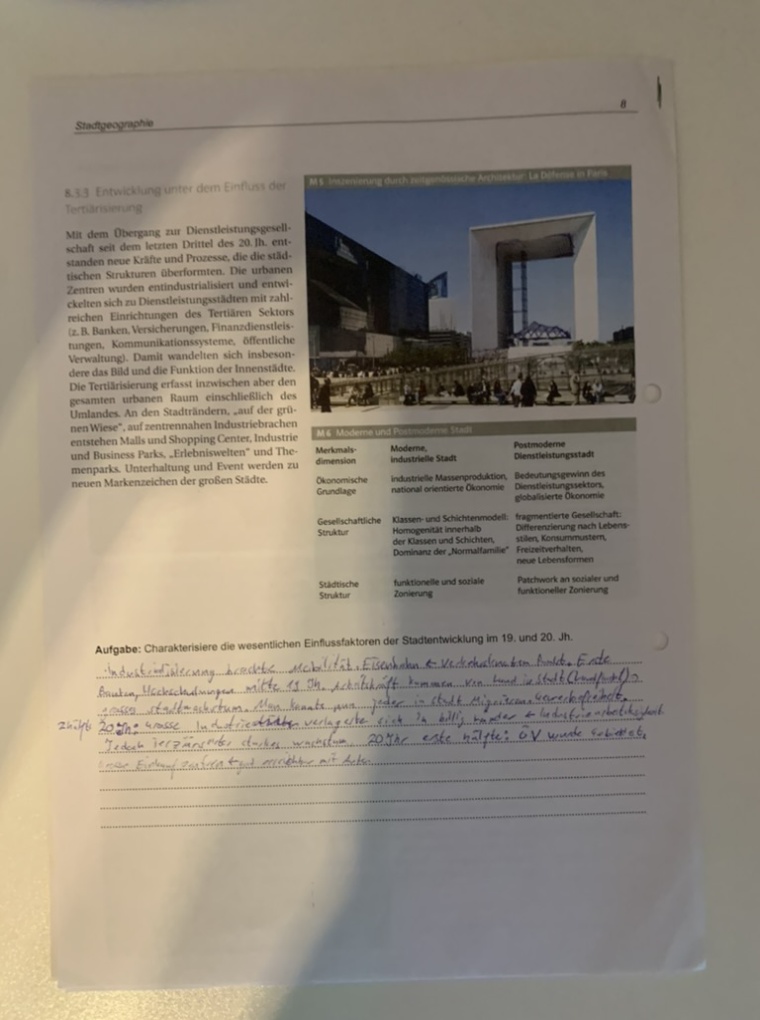 Stadtgeographie
8
8.3.3 Entwicklung unter dem Einfluss der
Tertiärisierung
Mit dem Übergang zur Dienstleistungsgesell-
schaft seit dem letzten Drittel des 20. Jh. ent-
standen neue Kräfte und Prozesse, die die städ-
tischen Strukturen überformten. Die urbanen
Zentren wurden entindustrialisiert und entwi-
ckelten sich zu Dienstleistungsstädten mit zahl-
reichen Einrichtungen des Tertiären Sektors
(z. B. Banken, Versicherungen, Finanzdienstleis-
tungen, Kommunikationssysteme, öffentliche
Verwaltung). Damit wandelten sich insbeson-
dere das Bild und die Funktion der Innenstädte.
Die Tertiärisierung erfasst inzwischen aber den
gesamten urbanen Raum einschließlich des
Umlandes. An den Stadträndern, „auf der grü-
nen Wiese“, auf zentrennahen Industriebrachen
entstehen Malls und Shopping Center, Industrie
und Business Parks, „Erlebniswelten“ und The-
menparks. Unterhaltung und Event werden zu
neuen Markenzeichen der großen Städte.
M 5 Inszenierung durch zeitgenössische Architektur: La Défense in Paris
M 6 Moderne und Postmoderne Stadt
Merkmals-
dimension
Moderne,
industrielle Stadt
Postmoderne
Dienstleistungsstadt
Ökonomische
Grundlage
industrielle Massenproduktion,
national orientierte Ökonomie
Bedeutungsgewinn des
Dienstleistungssektors,
globalisierte Ökonomie
Gesellschaftliche
Struktur
Klassen- und Schichtenmodell:
Homogenität innerhalb
der Klassen und Schichten,
Dominanz der „Normalfamilie“
fragmentierte Gesellschaft:
Differenzierung nach Lebens-
stilen, Konsummustern,
Freizeitverhalten,
neue Lebensformen
Städtische
Struktur
funktionelle und soziale
Zonierung
Patchwork an sozialer und
funktioneller Zonierung
Aufgabe: Charakterisiere die wesentlichen Einflussfaktoren der Stadtentwicklung im 19. und 20. Jh.
Industrialisierung brachte Mobilität. Eisenbahn Ende
mitte 19 Jh. kommen von Land in Stadt
grosses stadtwachstum. Man konnte nun jeder in stadt
20 Jh: Grosse verlagerte sich in
Jedoch wachstum. 20 Jhr erste hälfte: ÖV wurde
mit Auto.